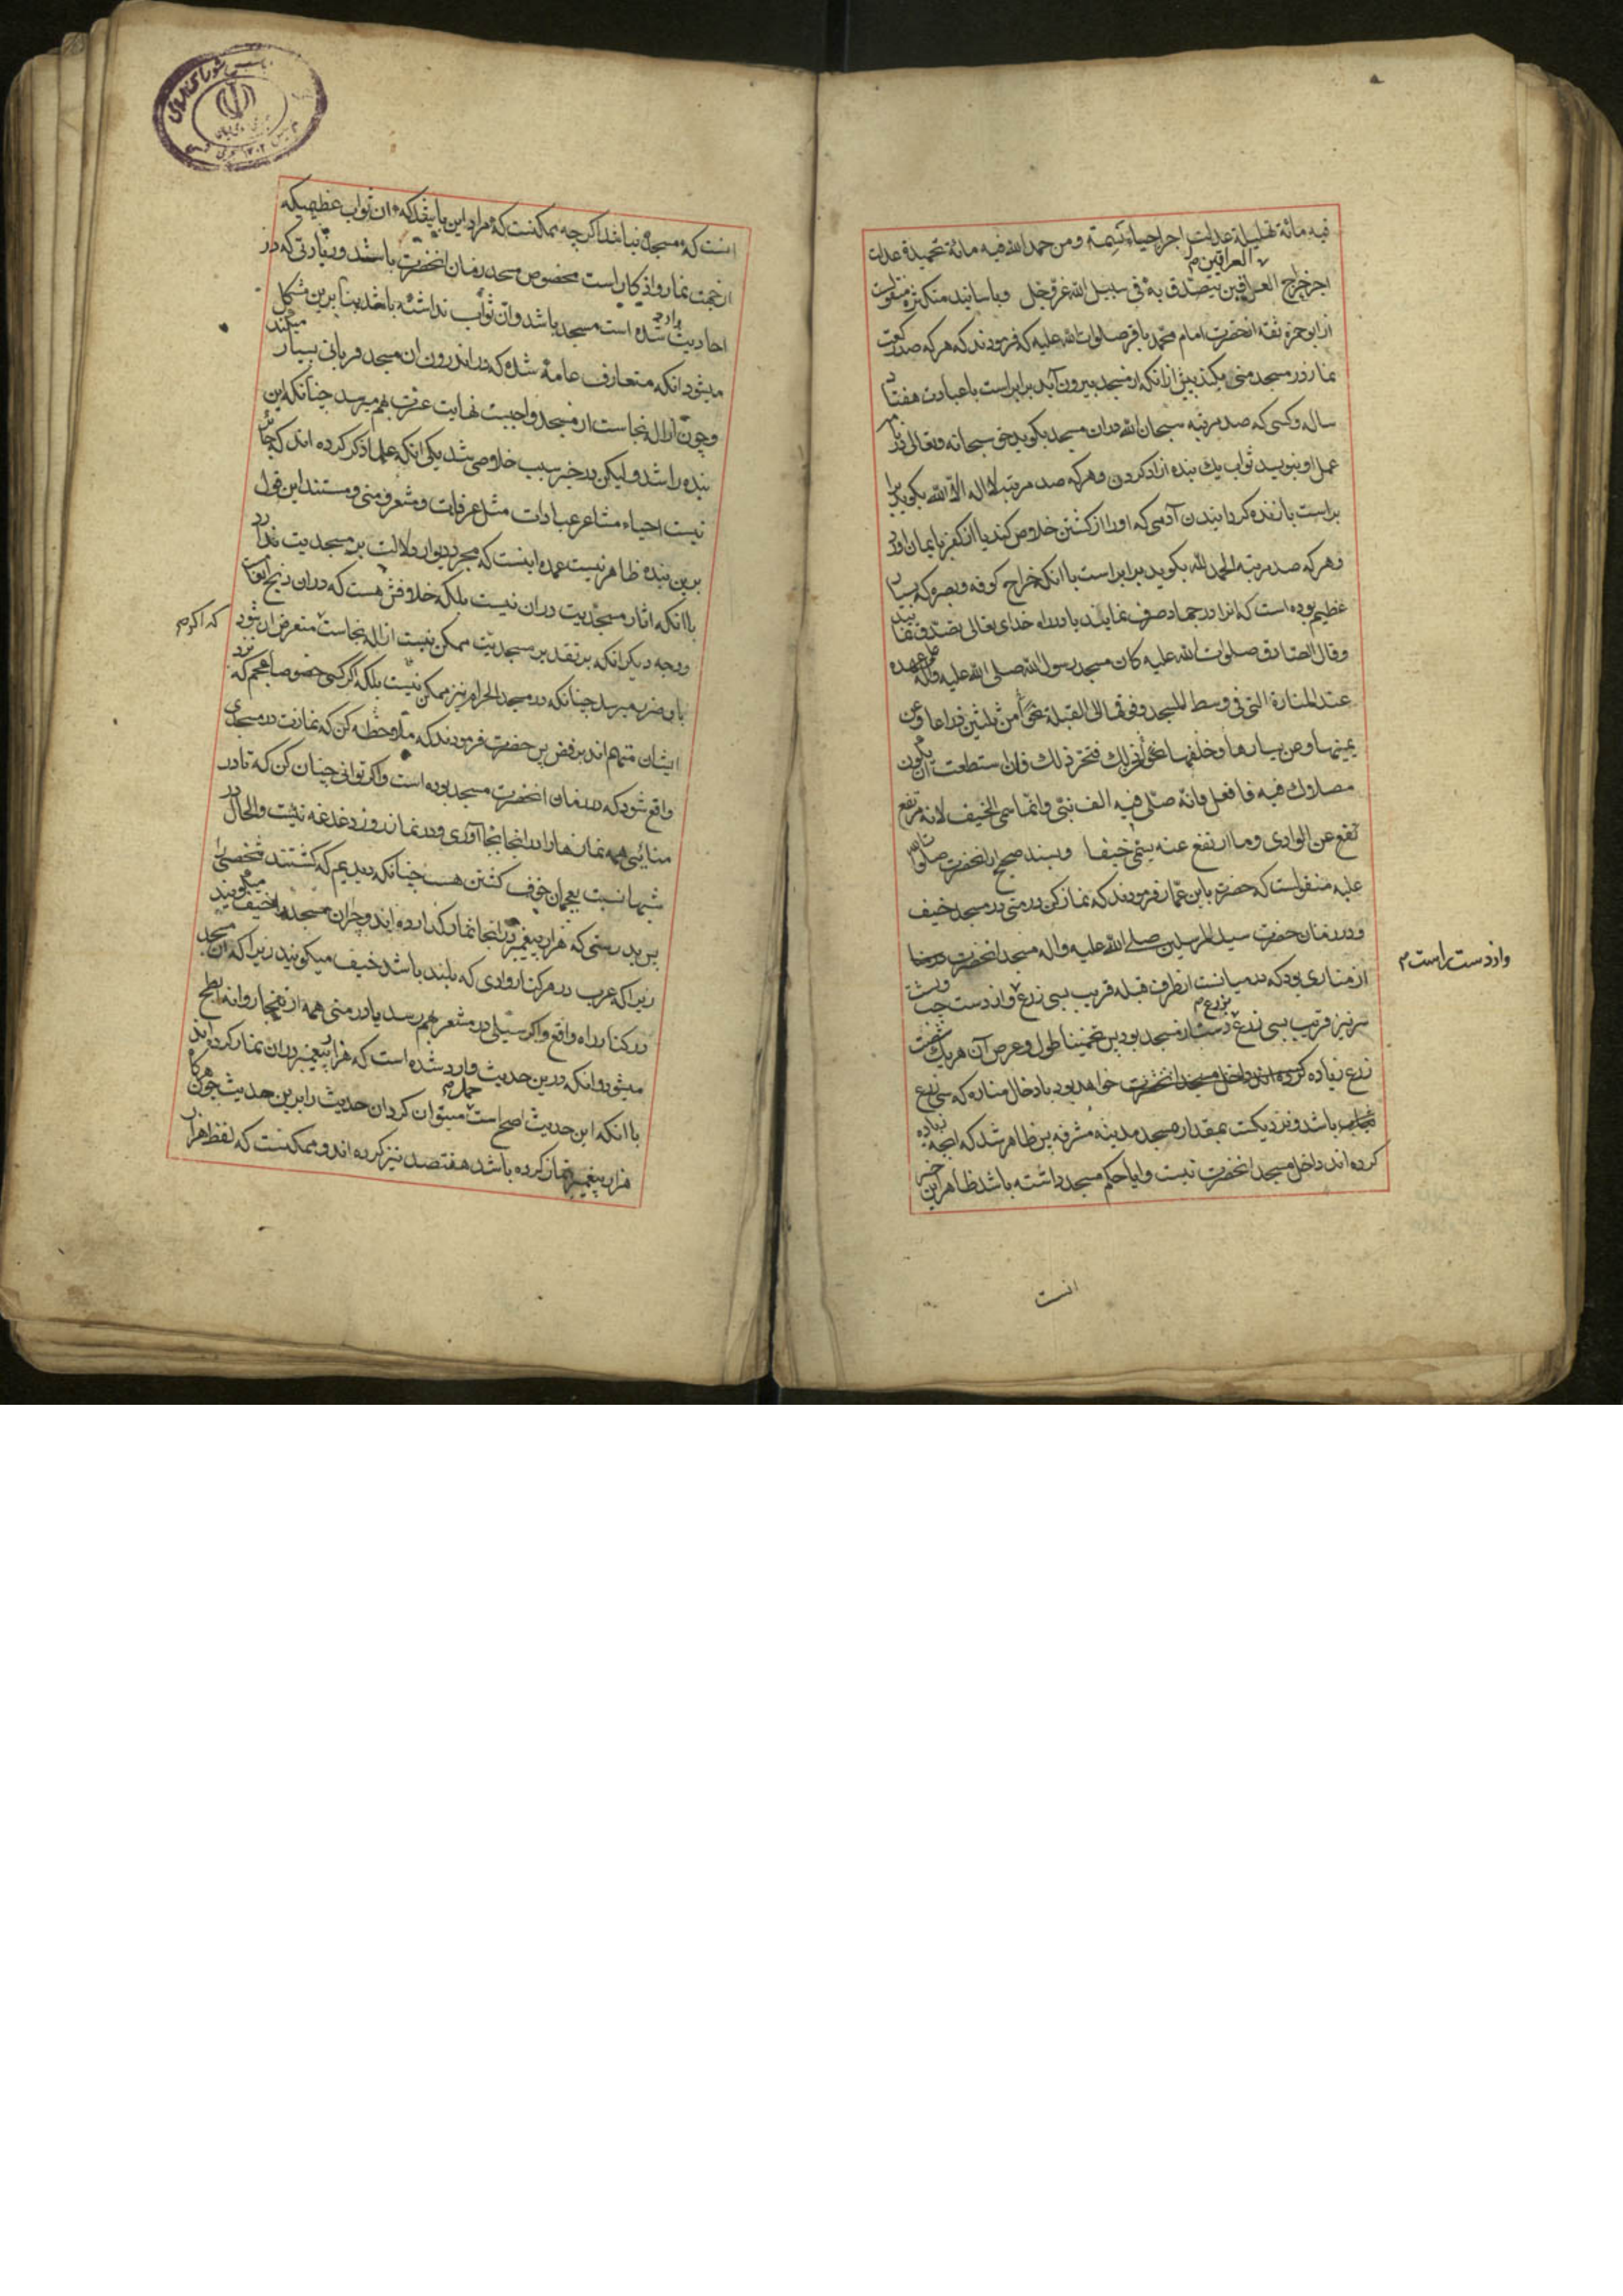 فیه مائة تهلیلة عدلت اجر احیاء نسمة ومن حمد الله فیه مائة تحمیدة عدلت
العراقین
اجر خراج العراقین یتصدق به فی سبیل الله عز وجل وباسانید متکثره منقولست
از ابو حمزه ثقه از حضرت امام محمد باقر صلوات الله علیه که فرمودند که هر که صد رکعت
نماز در مسجد منی بکند پیش از آنکه از مسجد بیرون آید برابر است با عبادت هفتاد
سال و کسی که صد مرتبه سبحان الله در ان مسجد بکوید حق سبحانه و تعالی در نامه
عمل او بنویسد ثواب یک بنده ازاد کردن و هر که صد مرتبه لا اله الا الله بکوید برا
براست با زنده کردانیدن آدمی که او را از کشتن خلاص کند یا از کفر بایمان اورد
و هر که صد مرتبه الحمد لله بکوید برابر است با انکه خراج کوفه و بصره که بسیار
عظیم بوده است که انرا در جهاد صرف نمایند یا در راه خدای تعالی تصدق نمایند
وقال الصادق صلوات الله علیه کان مسجد رسول الله صلی الله علیه واله علی عهده
عند المنارة التی فی وسط المسجد وفوقها الی القبلة نحوا من ثلثین ذراعا وعن
یمینها وعن یسارها وخلفها نحوا من ذلک فتحر ذلک فان استطعت ان یکون
مصلاک فیه فافعل فانه صلی فیه الف نبی وانما سمی الخیف لانه مرتفع
تفع عن الوادی وما ارتفع عنه یسمی خیفا وبسند صحیح از انحضرت صلوات الله
علیه منقولست که حضرت با ابن عمار فرمودند که نماز کن در منی در مسجد خیف
و در زمان حضرت سید المرسلین صلی الله علیه واله مسجد انحضرت
از مناری بود که در میانست از طرف قبله قریب بسی زرع و از دست چپ و پشت
واز دست راست
سر نیز قریب بسی زرع از مسجد بود پس تخمینا طول و عرض آن هر یک شصت
زرع زیاده خواهد بود با دخال مناره که سی زرع
باشد و نزدیکست بمقدار مسجد مدینه مشرفه پس ظاهر شد که انچه زیاده
کرده اند داخل مسجد انحضرت نیست و ایا حکم مسجد داشته باشد ظاهر این خبر
انست
انست که مسجد نباشد اکر چه ممکنست که مراد این باشد که ان ثواب عظیمیکه
از جهت نماز و اذکار است مخصوص مسجد زمان انحضرت باشد و زیارتی که در
احادیث وارد شده است مسجد باشد وان ثواب نداشته باشد بنابرین مشکل
میشود انکه متعارف عامه شده که در اندرون ان مسجد قربانی بسیار میکنند
و چون ازاله نجاست از مسجد واجبست نهایت عسرت بهم میرسد چنانکه این
بنده را شد و لیکن در خیر سبب خلاصی شد یکی انکه علما ذکر کرده اند که جائز
نیست احیاء مشاعر عبادات مثل عرفات و مشعر و منی و مستند این قول
برین بنده ظاهر نیست عمده اینست که مجرد دیوار دلالت بر مسجدیت ندارد
با انکه اثار مسجدیت در ان نیست بلکه خلافش هست که در ان ذبح واقعست
و وجه دیکر انکه بر تقدیر مسجدیت ممکن نیست ازاله نجاست متعرض ان شود
که اکر
باو ضرر میرسد چنانکه در مسجد الحرام نیز ممکن نیست بلکه اکر کسی خصوصا عجم که نزد
ایشان متهم اند برفض پس حضرت فرمودند که ملاحظه کن که نمازت در مسجدی
واقع شود که در زمان انحضرت مسجد بوده است و اکر توانی چنان کن که تا در
منائی همه نمازها را در انجا بجا آوری و در نماز روز دغدغه نیست والحال در
شبها نسبت بعجمان خوف کشتن هست چنانکه دیدیم که کشتند شخصی را
پس بدرستی که هزار پیغمبر در انجا نماز کذارده اند و چرا ان مسجد را خیف میکویند
زیرا که عرب در هر کنار وادی که بلند باشد خیف میکویند زیرا که ان مسجد
در کنار راه واقع و اکر سیلی در مشعر بهم رسد یا در منی همه از انجا روانه ابطح
میشود و انکه درین حدیث وارد شده است که هزار پیغمبر در ان نماز کرده اند
با انکه این حدیث اصح است میتوان کرد ان حدیث را برین حدیث چون هرکاه
حمل
هزار پیغمبر نماز کرده باشد هفتصد نیز کرده اند و ممکنست که لفظ هزار